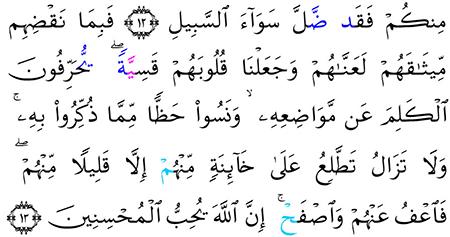 مِنكُمْ فَقَد ضَّلَّ سَوَآءَ ٱلسَّبِيلِ ١٢ فَبِمَا نَقْضِهِم
مِّيثَـٰقَهُمْ لَعَنَّـٰهُمْ وَجَعَلْنَا قُلُوبَهُمْ قَسِيَّةً ۖ يُحَرِّفُونَ
ٱلْكَلِمَ عَن مَّوَاضِعِهِۦ ۙ وَنَسُوا۟ حَظًّا مِّمَّا ذُكِّرُوا۟ بِهِۦ ۚ
وَلَا تَزَالُ تَطَّلِعُ عَلَىٰ خَآئِنَةٍ مِّنْهُمْ إِلَّا قَلِيلًا مِّنْهُمْ ۖ
فَٱعْفُ عَنْهُمْ وَٱصْفَحْ ۚ إِنَّ ٱللَّهَ يُحِبُّ ٱلْمُحْسِنِينَ ١٣